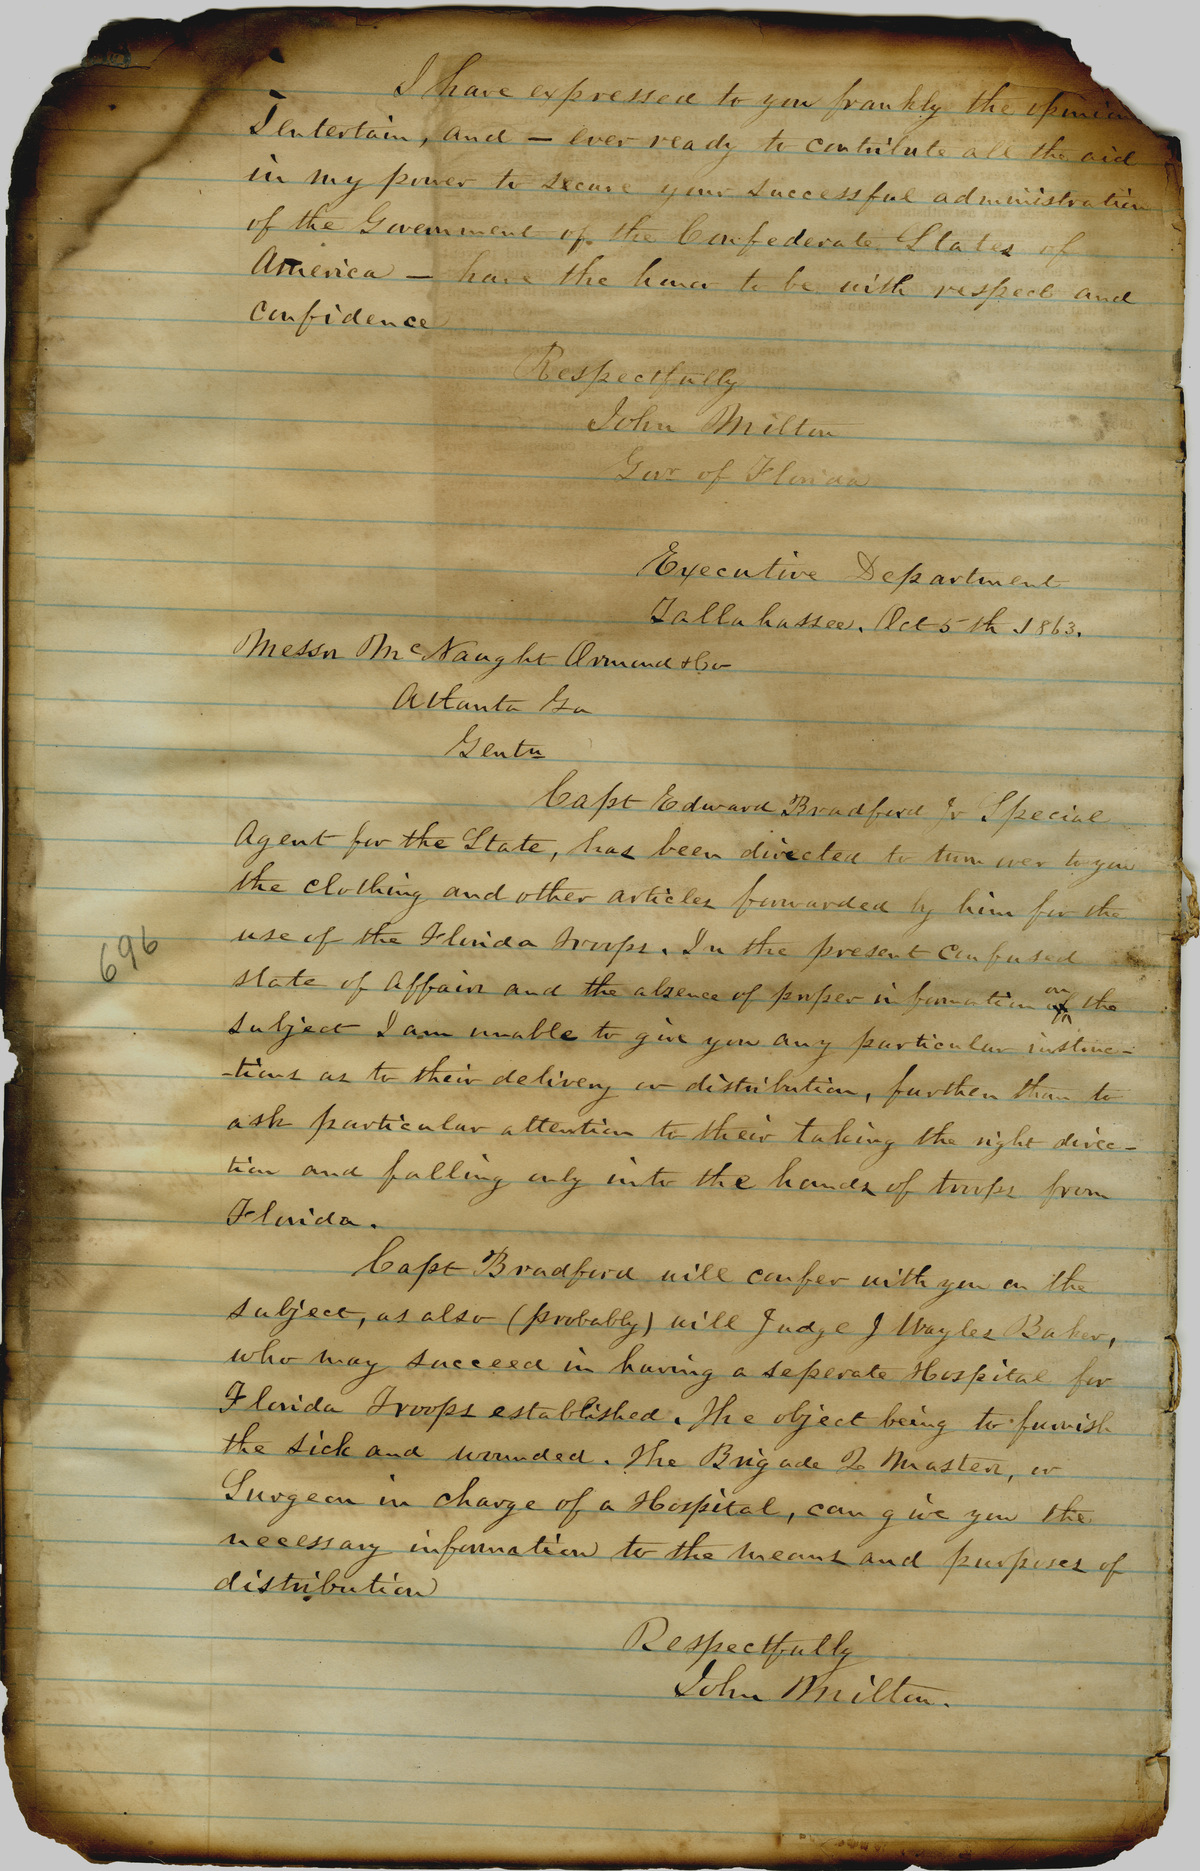 I have expressed to you frankly the opinion
I entertain, and — ever ready to contribute all the aid
in my power to secure your successful administration
of the Government of the Confederate States of
America — have the honor to be with respect and
confidence
Respectfully
John Milton
Govr of Florida
Executive Department
Tallahassee. Oct 5th 1863.
Messrs McNaught Ormond & Co
Atlanta Ga
Gentn
Capt Edward Bradford Jr Special
Agent for the State, has been directed to turn over to you
the clothing and other articles forwarded by him for the
use of the Florida troops. In the present confused
696
state of affairs and the absence of proper information on the
subject I am unable to give you any particular instruc-
-tions as to their delivery or distribution, further than to
ask particular attention to their taking the right direc-
tion and falling only into the hands of troops from
Florida.
Capt Bradford will confer with you on the
subject, as also (probably) will Judge J Wayles Baker,
who may succeed in having a seperate Hospital for
Florida Troops established. The object being to furnish
the sick and wounded. The Brigade Q Master, or
Surgeon in charge of a Hospital, can give you the
necessary information to the means and purposes of
distribution
Respectfully
John Milton.